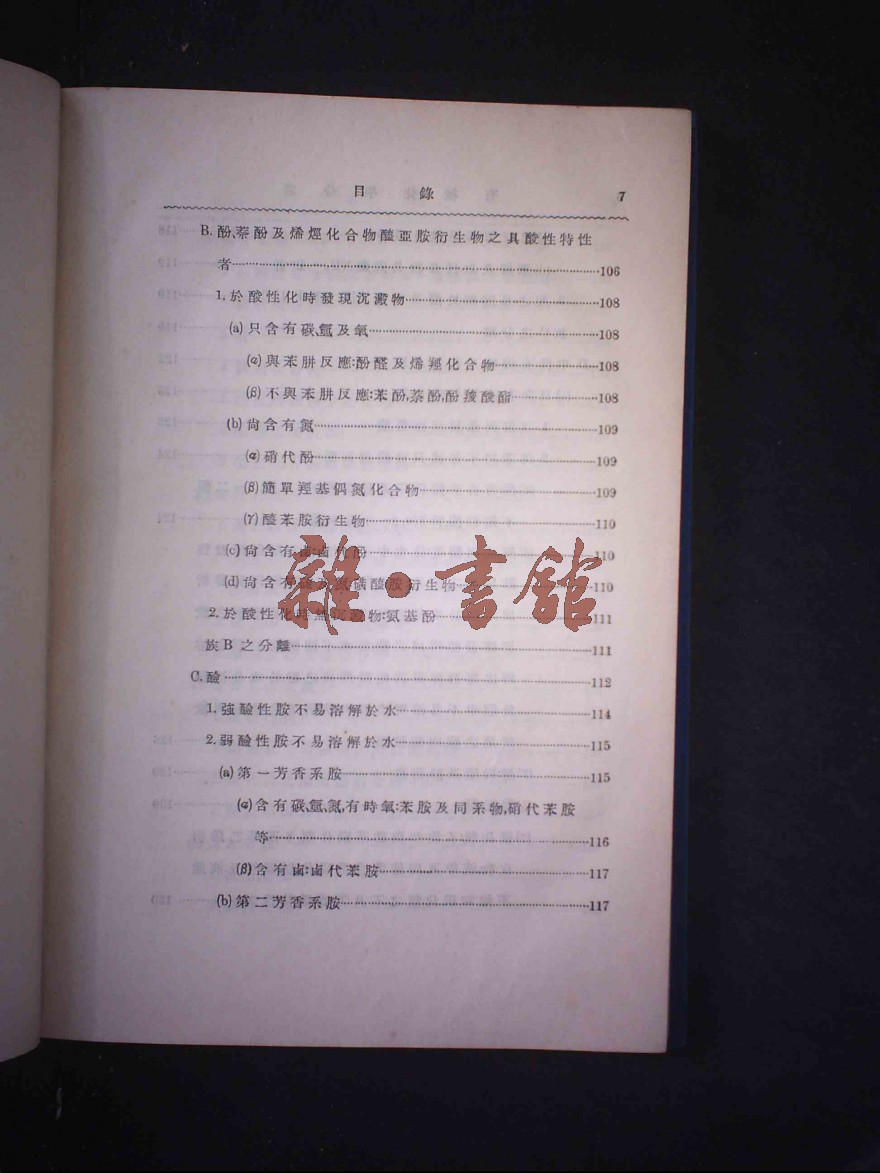 目錄 7
B. 酚、萘酚及烯烴化合物醯亞胺衍生物之具酸性特性
者……106
1. 於酸性化時發現沉澱物……108
(a) 只含有碳、氫及氧……108
(α) 與苯肼反應:酚醛及烯羥化合物……108
(β) 不與苯肼反應:苯酚,萘酚,酚羧酸酯……108
(b) 尙含有氮……109
(α) 硝代酚……109
(β) 簡單羥基偶氮化合物……109
(γ) 醯苯胺衍生物……110
(c) 尙含有鹵:鹵代酚……110
(d) 尙含有硫及氮:磺醯胺衍生物……110
2. 於酸性化時無沉澱物:氨基酚……111
族 B 之分離……111
C. 鹼……112
1. 強鹼性胺不易溶解於水……114
2. 弱鹼性胺不易溶解於水……115
(a) 第一芳香系胺……115
(α) 含有碳、氫、氮,有時氧:苯胺及同系物,硝代苯胺
等……116
(β) 含有鹵:鹵代苯胺……117
(b) 第二芳香系胺……117
雜·書館